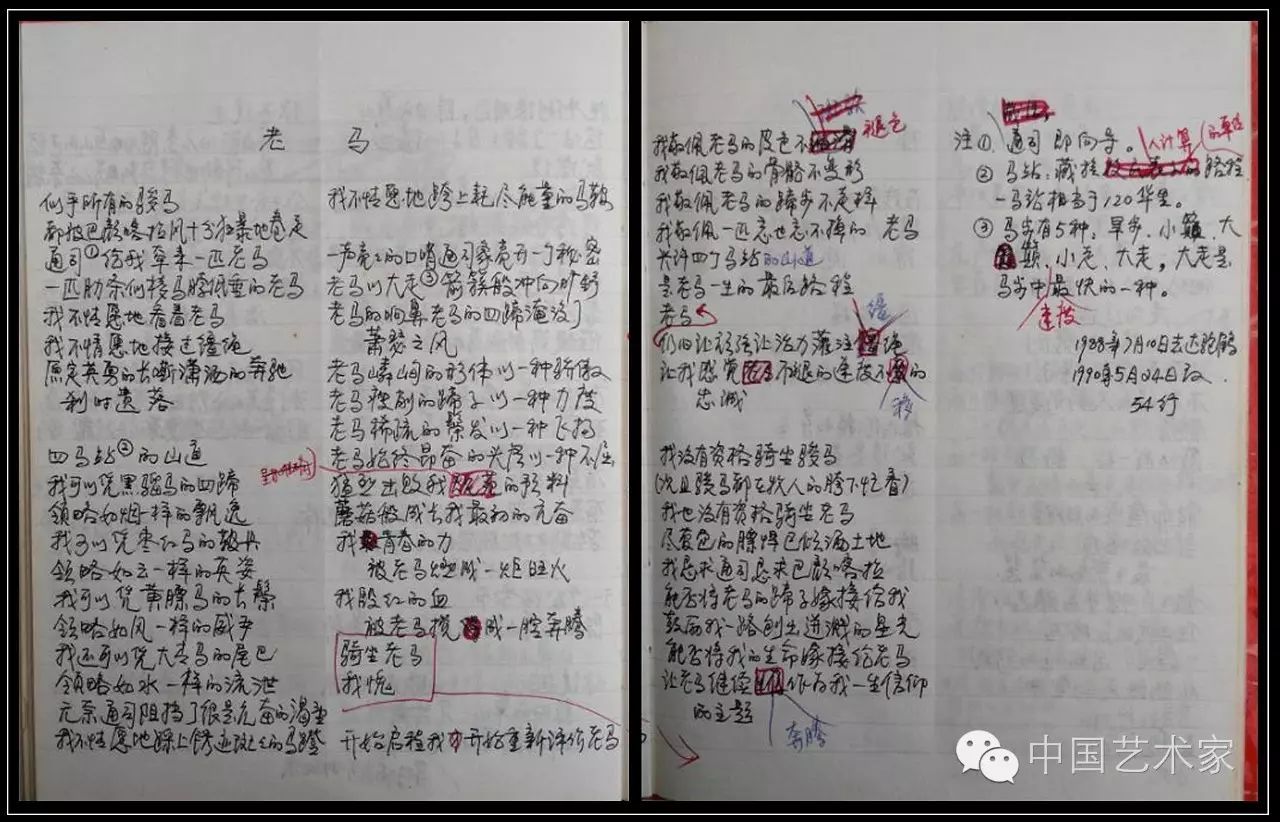 老马
似乎所有的骏马
都被巴颜喀拉风十分狂暴地卷走
通司①给我牵来一匹老马
一匹肋条似楼马膘低垂的老马
我不情愿地看着老马
我不情愿地接过缰绳
原定英勇的长嘶潇洒的奔驰
利时遗落
四马站②的山道
我可以凭黑骝马的四蹄
领略如烟一样的飘逸
我可以凭枣红马的
领略如云一样的英姿
我可以凭黄骠马的长鬃
领略如风一样的威力
我还可以凭大青马的尾巴
领略如水一样的流泄
无奈通司阻挡了很是亢奋的渴望
我不情愿地踩上锈迹斑斑的马蹬
我不情愿地跨上耗尽能量的马鞍
一声亮亮的口哨通司象亮开一个秘密
老马以大走③箭簇般冲向旷野
老马的响鼻老马的四蹄淹没了
萧瑟之风
老马嶙峋的形体以一种骄傲
老马疲剥的蹄子以一种力度
老马稀疏的鬃发以一种飞扬
老马始终昂奋的头颅以一种不屈
猛烈出我的预料
蘑菇般成长我最初的亢奋
我青春的力
被老马燃成一炬旺火
我殷红的血
被老马搅成一腔奔腾
骑坐老马
我恍
开始启程我才开始重新评价老马
我敬佩老马的皮色不褪色
我敬佩老马的骨骼不变形
我敬佩老马的蹄步不走样
我敬佩一匹忘也忘不掉的老马
兴许四个马站的山道
是老马一生的最后路程
老马
仍旧让顽强让活力灌注缰绳
让我感觉不退的速度不移的
忠诚
我没有资格骑坐骏马
(况且骏马都在牧人的胯下忙着)
我也没有资格骑坐老马
尽管它的膘悍已倾洒土地
我恳求通司恳求巴颜喀拉
能否将老马的蹄子嫁接给我
敦励我一路创出迸溅的星光
能否将我的生命嫁接给老马
让老马继续奔腾作为我一生信仰
的主题
注①、通司 即向导。
② 马站:藏族人计算路程的单位
一马站相当于120华里。
③ 马步有5种,旱步、小颠、大
颠、小走、大走,大走是
马步中速度最快的一种。
1988年7月10日去达驼鸽
1990年5月24日改.
54行
中国艺术家